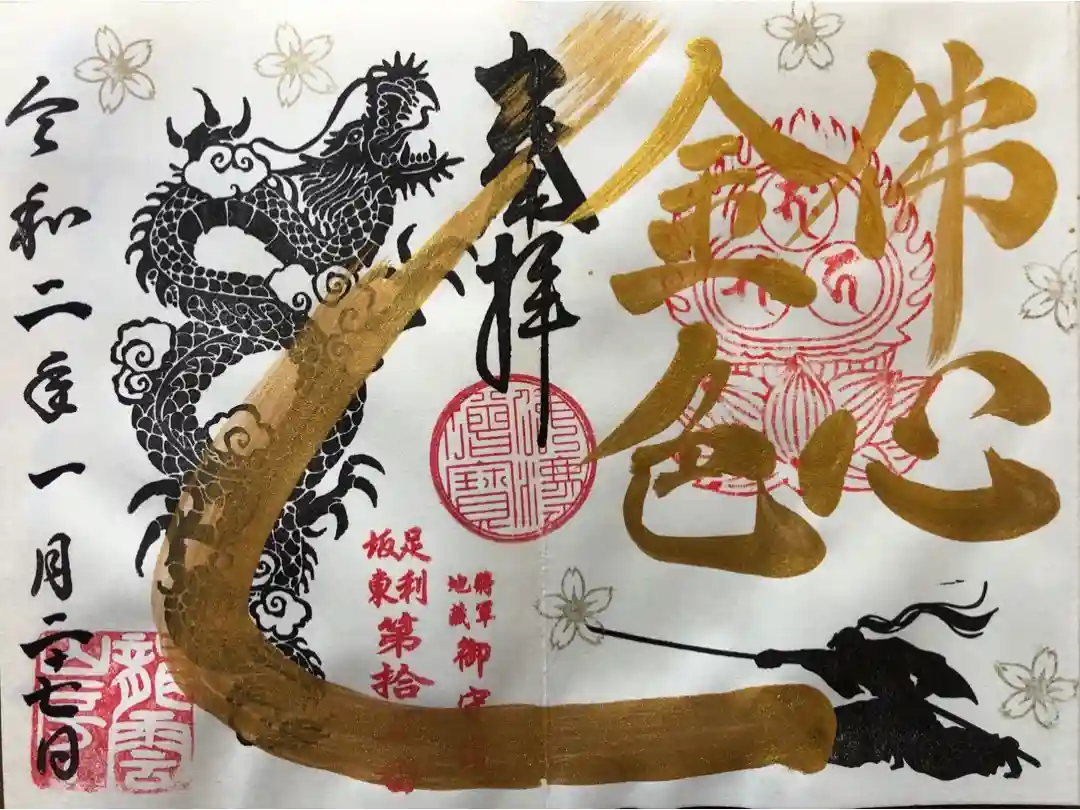 佛心
金色
奉拝
佛法僧寶
將軍
地蔵
御守
足利
坂東
第拾
令和二年一月二十七日
龍雲